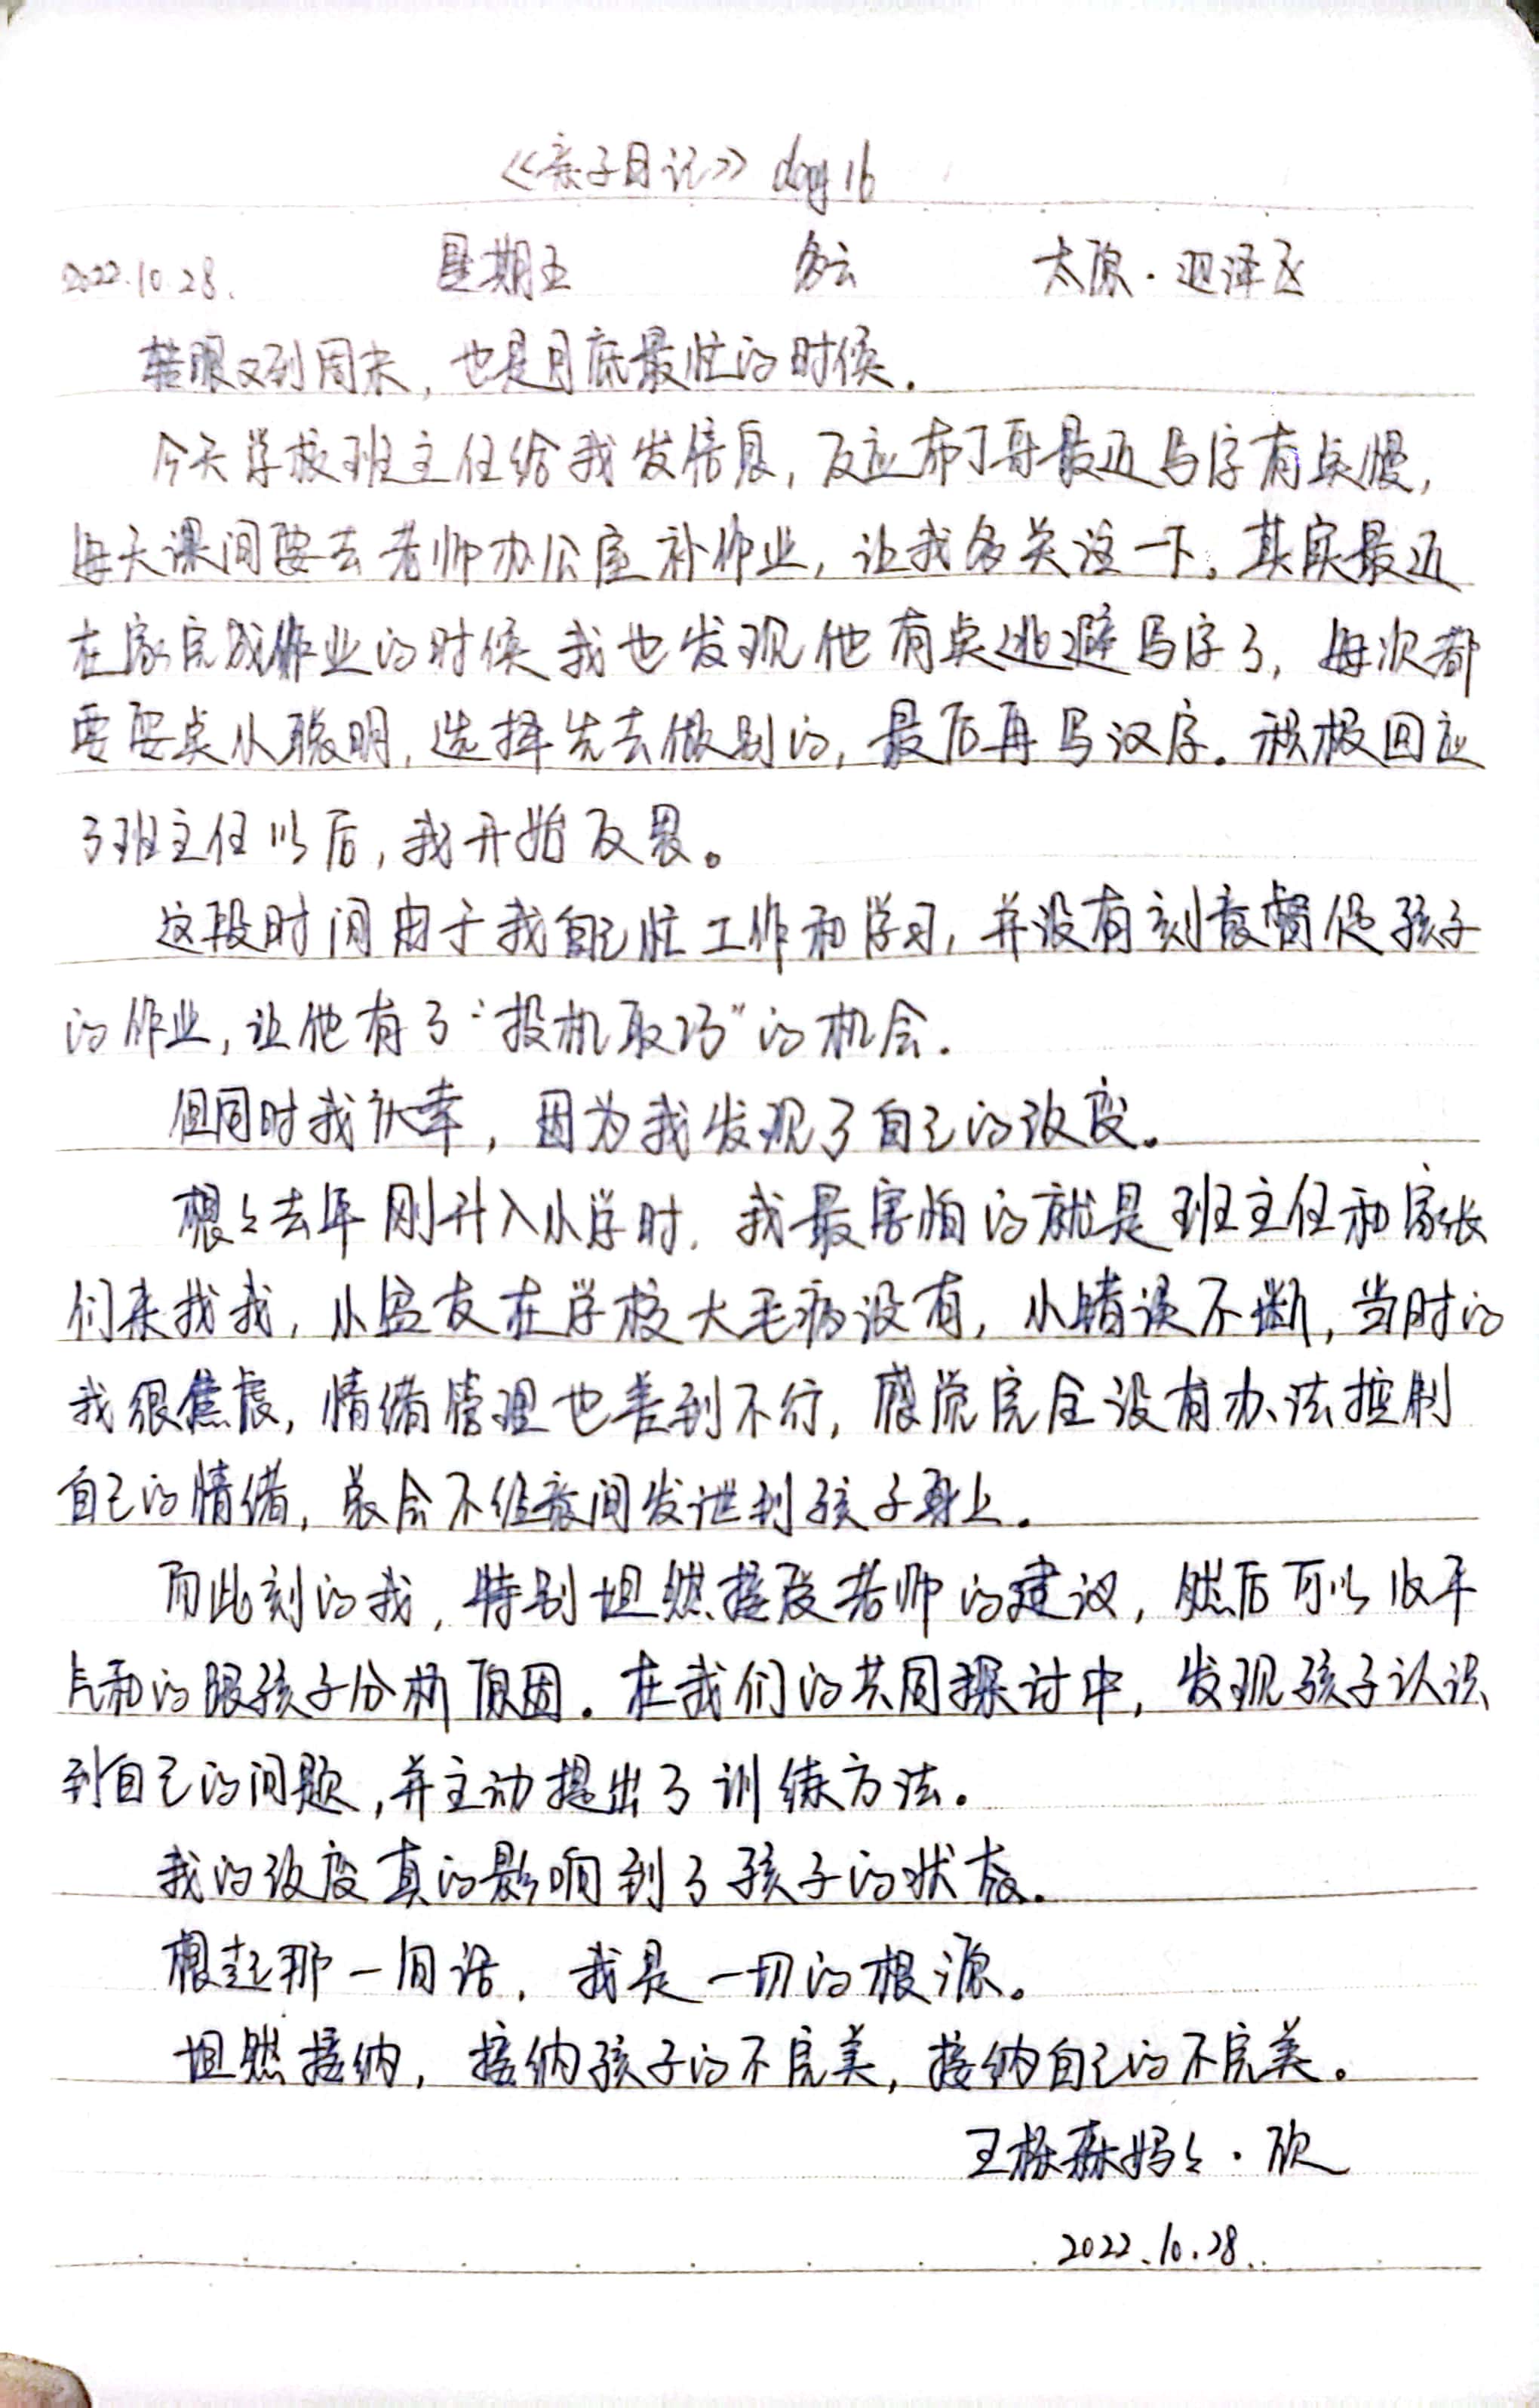 《亲子日记》day 16
2022.10.28. 星期五 多云 太原·迎泽区
转眼又到周末，也是月底最忙的时候.
今天学校班主任给我发信息，反应布丁哥最近写字有点慢，
每天课间要去老师办公室补作业，让我多关注一下。其实最近
在家完成作业的时候我也发现他有点逃避写字了，每次都
要耍点小聪明，选择先去做别的，最后再写汉字。积极回应
了班主任以后，我开始反思。
这段时间由于我自己忙工作和学习，并没有刻意督促孩子
的作业，让他有了“投机取巧”的机会.
但同时我庆幸，因为我发现了自己的改变。
想想去年刚升入小学时，我最害怕的就是班主任和家长
们来找我，小盆友在学校大毛病没有，小错误不断，当时的
我很焦虑，情绪管理也差到不行，感觉完全没有办法控制
自己的情绪，总会不经意间发泄到孩子身上.
而此刻的我，特别坦然接受老师的建议，然后可以心平
气和的跟孩子分析原因。在我们的共同探讨中，发现孩子认识
到自己的问题，并主动提出了训练方法。
我的改变真的影响到了孩子的状态.
想起那一句话，我是一切的根源。
坦然接纳，接纳孩子的不完美，接纳自己的不完美。
王栎森妈妈·欣
2022.10.28.